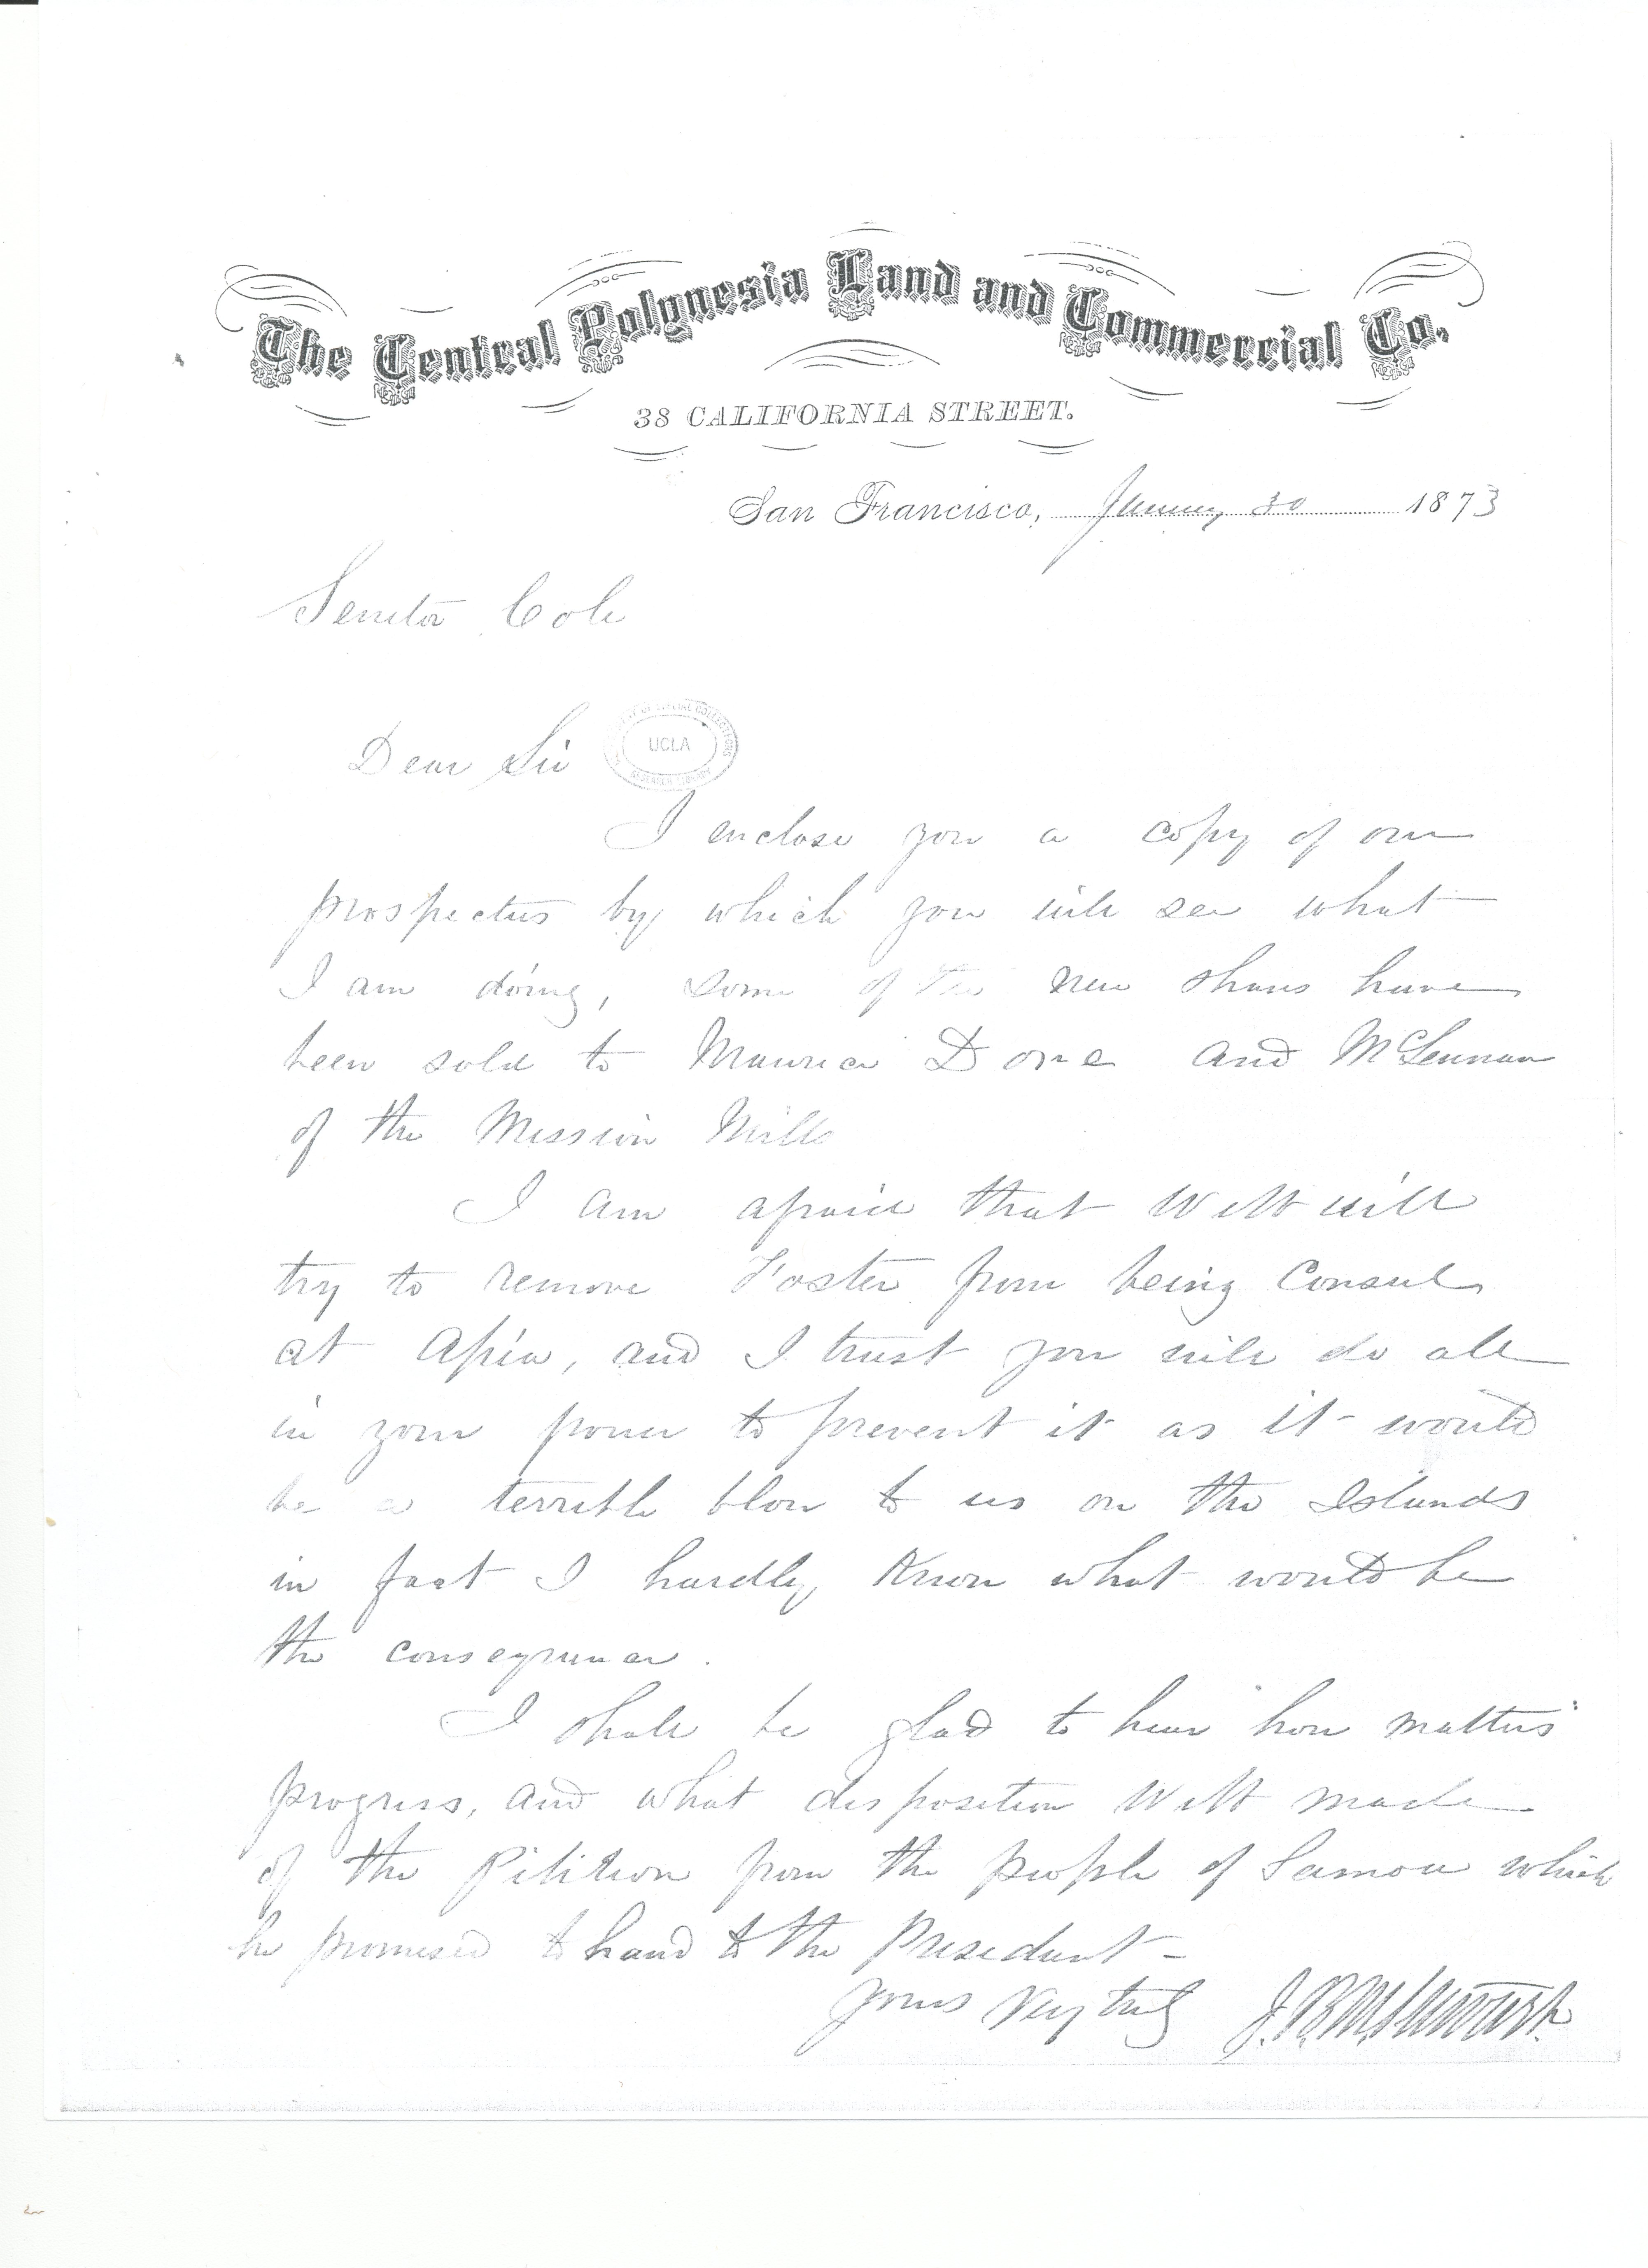 The Central Polynesia Land and Commercial Co.
38 CALIFORNIA STREET.
San Francisco, January 30 1873
Senator Cole
Dear Sir
UCLA
I enclose you a copy of our
prospectus by which you will see what
I am doing, some of the new shares have
been sold to Maurice Dore and McLennan
of the Mission Mills
I am afraid that Webb will
try to remove Foster from being Consul
at Apia, and I trust you will do all
in your power to prevent it as it would
be a terrible blow to us on the Islands
in fact I hardly know what would be
the consequence.
I shall be glad to hear how matters
progress, and what disposition Webb made
of the Petition from the people of Samoa which
he promised to hand to the President -
Yours very truly J. B. M. Stewart.